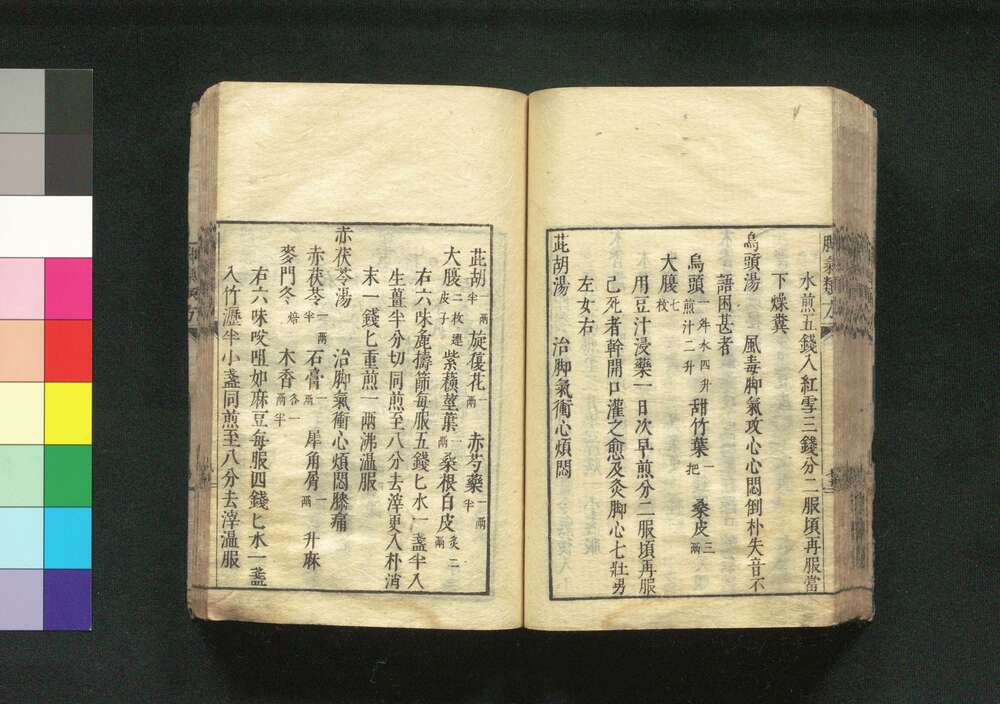 水煎五錢入紅雪三錢分二服頃再服當
下燥糞
烏頭湯　風毒脚氣攻心心悶倒朴失音不
語困甚者
烏頭一年水四升煎汁二升　甜竹葉一把　桑皮三兩
大腹七枚
用豆汁浸藥一日次早煎分二服頃再服
已死者幹開口灌之愈及灸脚心七壯男
左女右
茈胡湯　治脚氣衝心煩悶
茈胡一兩半　旋復花一兩　赤芍藥一兩半
大腹二枚連皮子　紫蘇莖葉一兩　桑根白皮炙二兩
右六味麁擣篩每服五錢匕水一盞半入
生薑半分切同煎至八分去滓更入朴消
末一錢匕重煎一兩沸温服
赤茯苓湯　治脚氣衝心煩悶膝痛
赤茯苓一兩半　石膏一兩　犀角屑一兩　升麻
麥門冬焙　木香各一兩半
右六味㕮咀如麻豆每服四錢匕水一盞
入竹瀝半小盞同煎至八分去滓温服